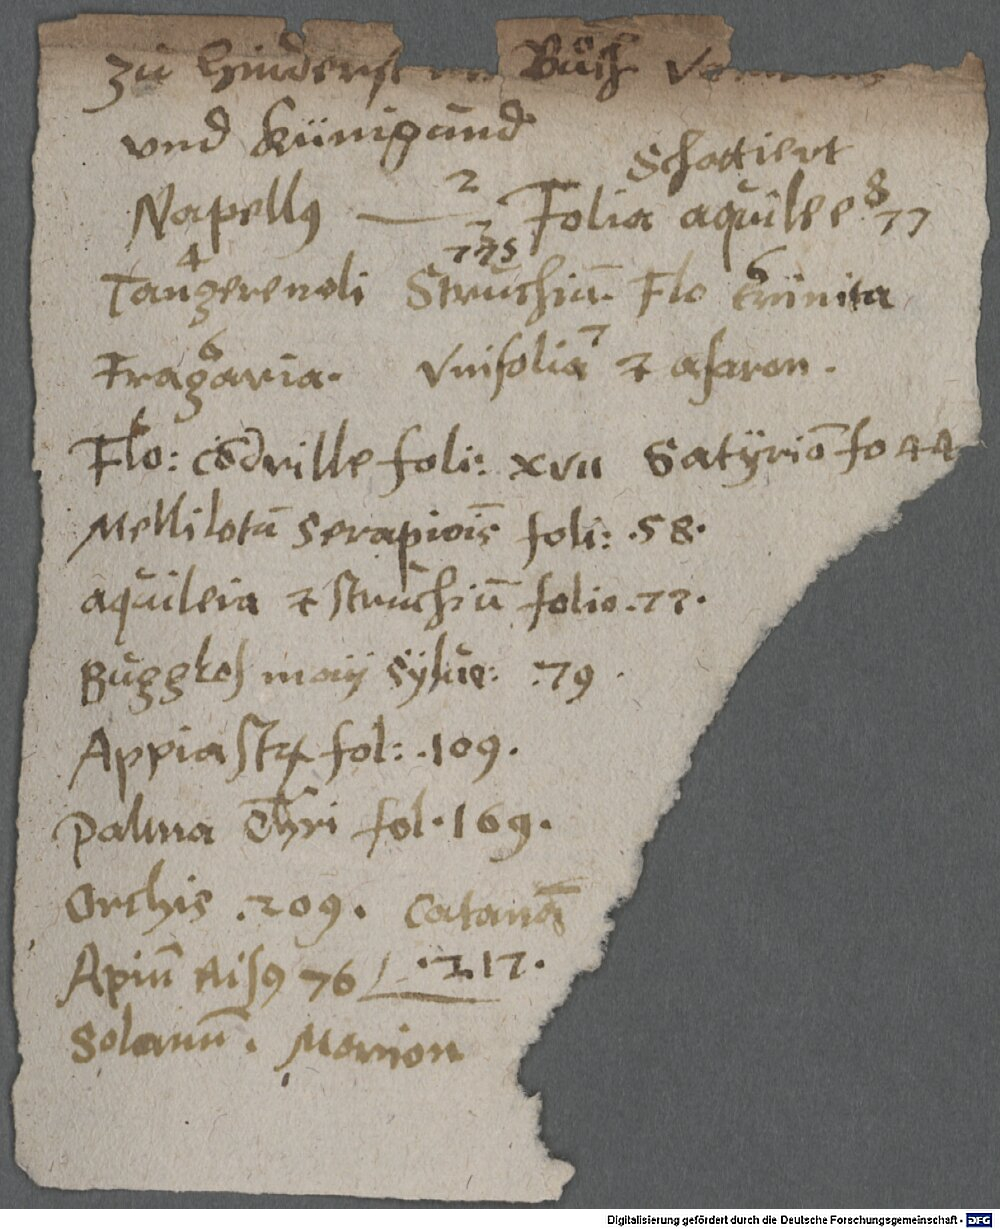 zů hinderst im Bůch
vnd Künigund
Schattiert
Napellꝰ — 2 Folia aquilee 8 77
4 775
Tangerenoli Struthiū Flo trinita 6
Fragaria. 6 Vnifoliā 7 ⁊ asaron.
Flo: foli: xvıı Satÿriō fo 44
Mellilotū Serapiōis foli: .58.
aquileia ⁊ struthiū folio .77.
Bugglos maij Sÿlue: .79.
Appiastrꝝ fol: .109.
palma Chri fol .169.
Orchis .209. Catanā
Apiū Risꝰ 76 .217.
Solanū. Morion
Digitalisierung gefördert durch die Deutsche Forschungsgemeinschaft - DFG